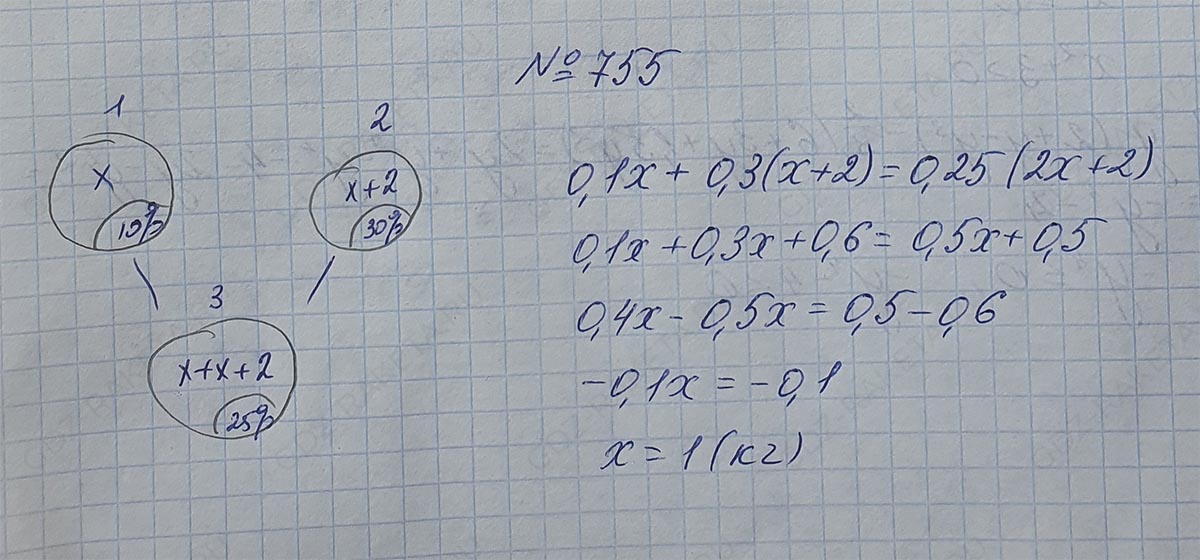 № 755
1
x
10%
2
x+2
30%
3
x+x+2
25%
0,1x + 0,3(x+2) = 0,25 (2x+2)
0,1x + 0,3x + 0,6 = 0,5x + 0,5
0,4x - 0,5x = 0,5 - 0,6
-0,1x = -0,1
x = 1 (кг)